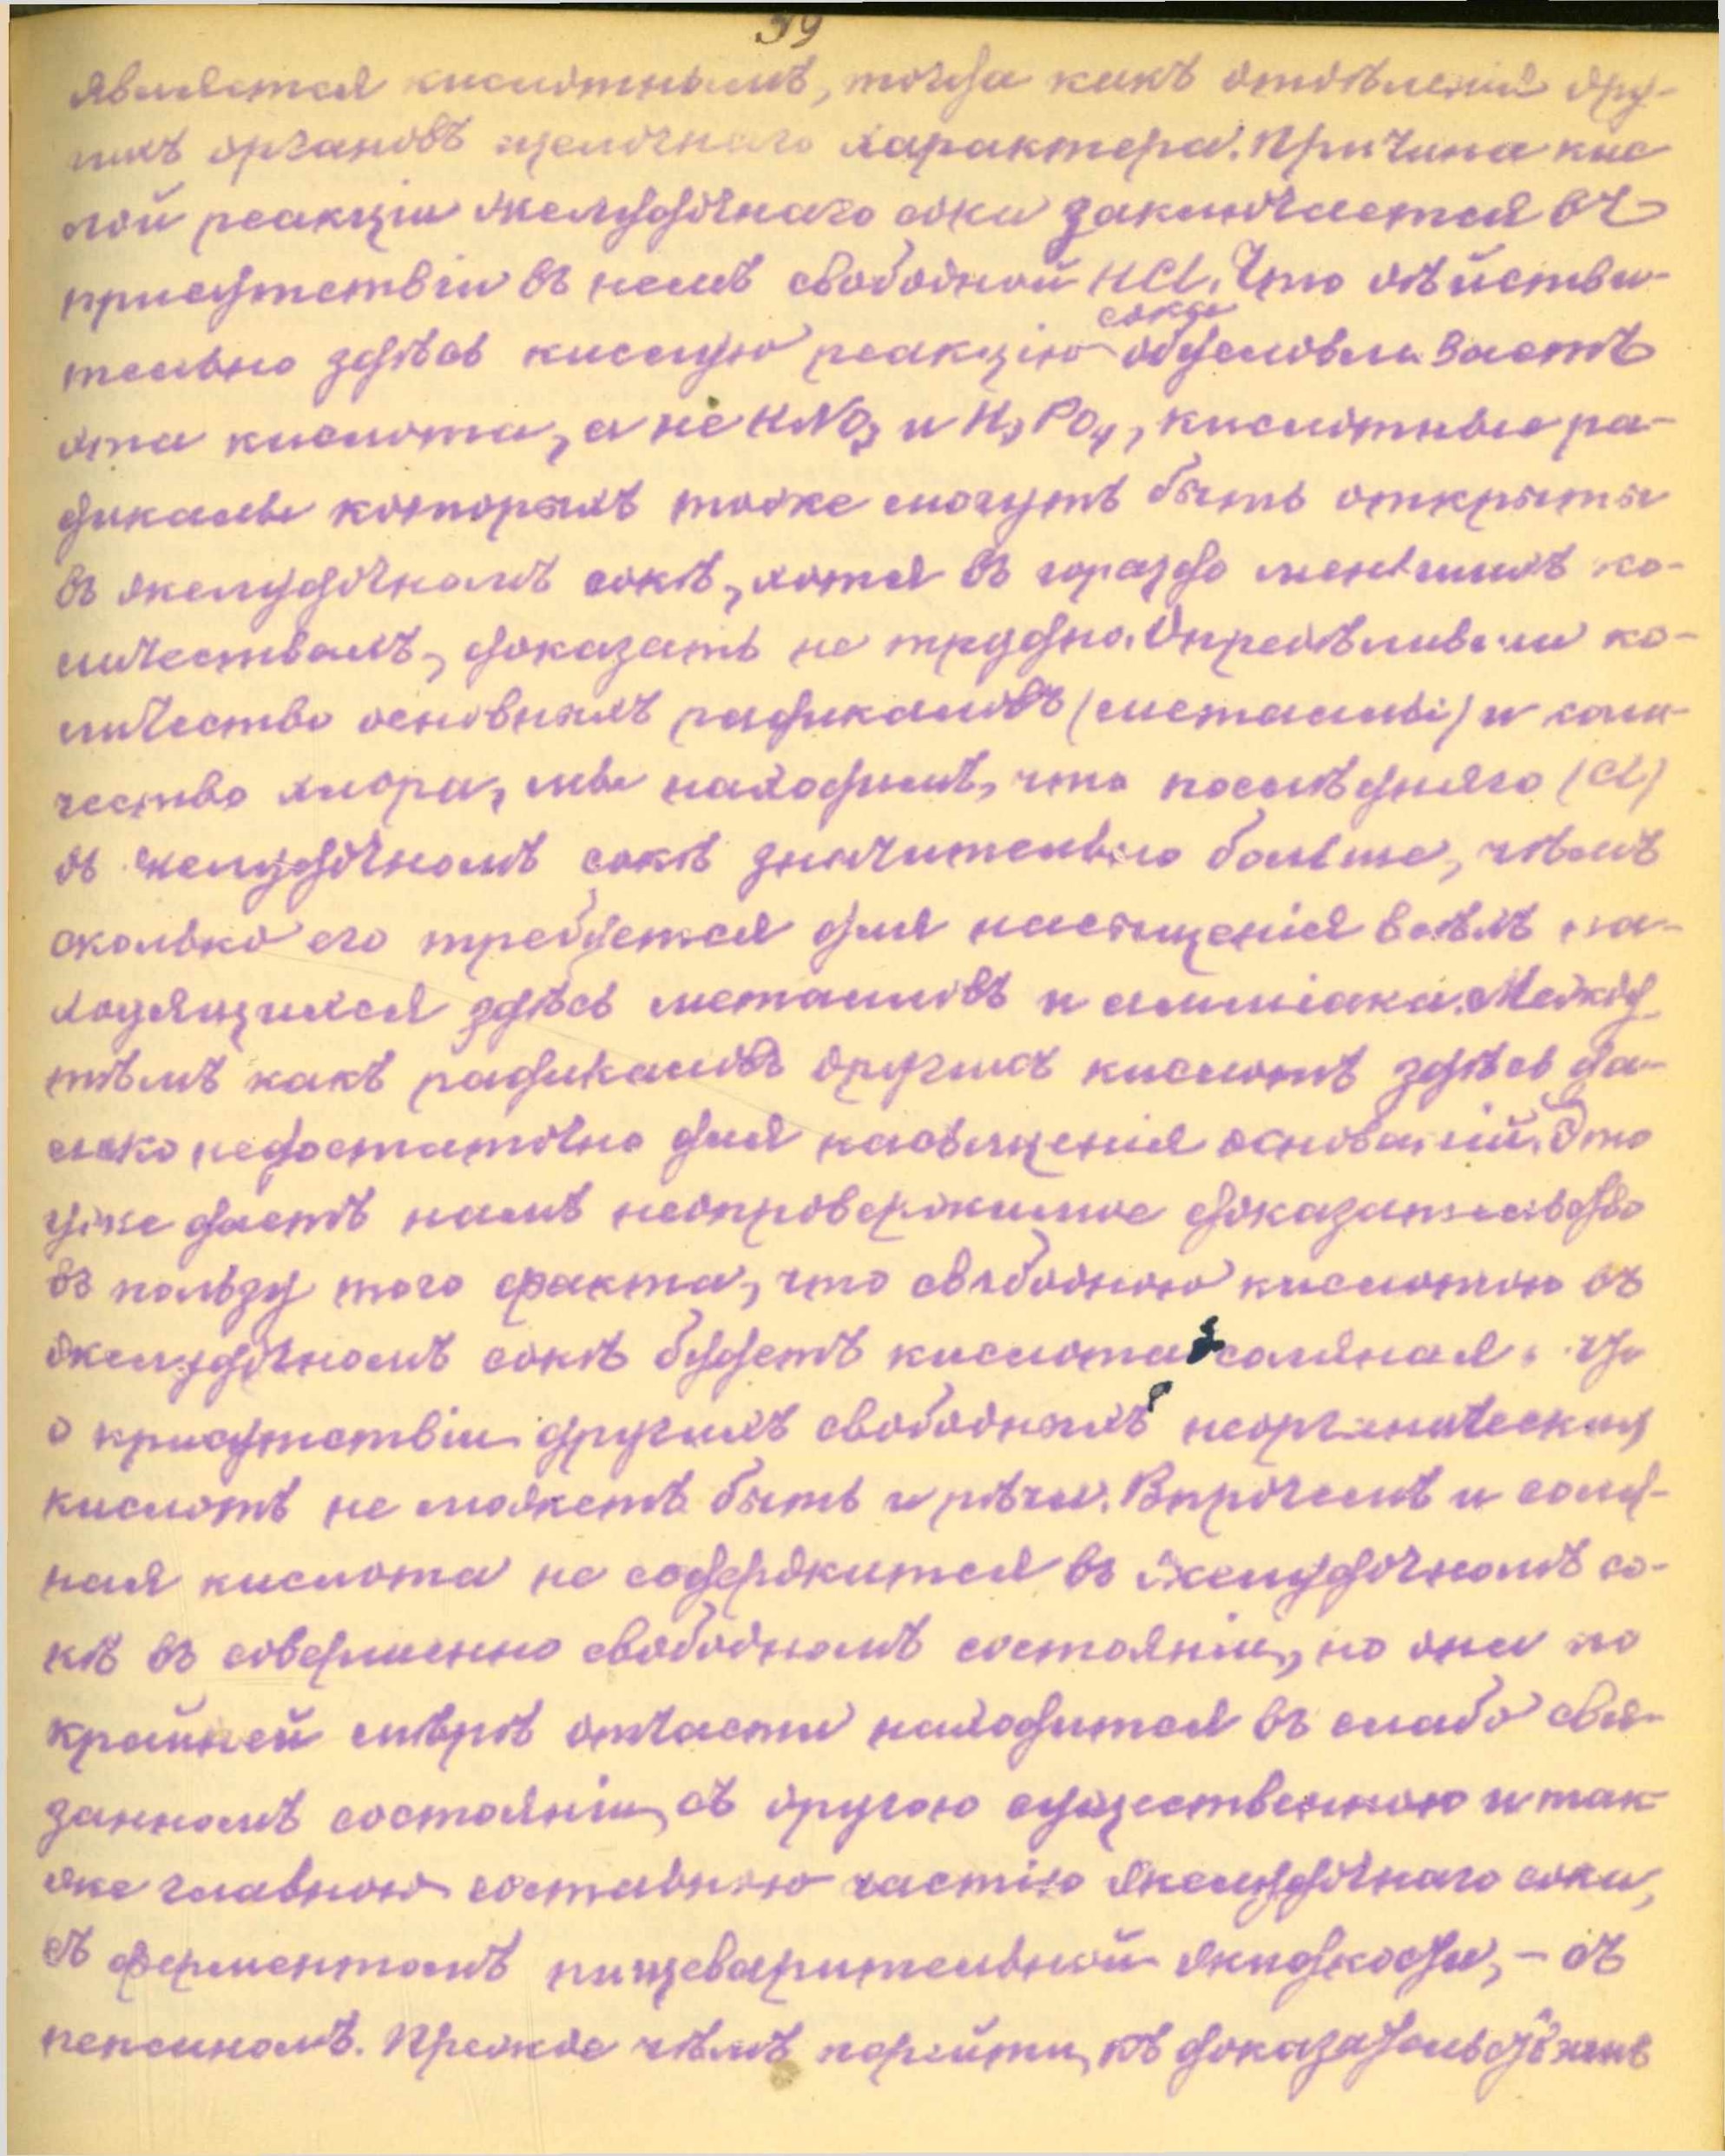 39
является кислотнымъ, тогда какъ отдѣленія дру-
гихъ органовъ щелочнаго характера. Причина кис
лой реакціи желудочнаго сока заключается въ
присутствіи въ немъ свободной HCl. Что дѣйстви-
сока
тельно здѣсь кислую реакцію обусловливаетъ
эта кислота, а не HNO3 и H3PO4, кислотные ра-
дикалы которыхъ тоже могутъ быть открыты
въ желудочномъ сокѣ, хотя въ гораздо меньшихъ ко-
личествахъ, доказать не трудно. Опредѣливши ко-
личество основныхъ радикаловъ (металлы) и коли-
чество хлора, мы находимъ, что послѣдняго (Cl)
въ желудочномъ сокѣ значительно больше, чѣмъ
сколько его требуется для насыщенія всѣхъ на-
ходящихся здѣсь металловъ и амміака. Между
тѣмъ какъ радикаловъ другихъ кислотъ здѣсь да-
леко недостаточно для насыщенія основаній. Это
уже даетъ намъ неопровержимое доказательство
въ пользу того факта, что свободною кислотою въ
желудочномъ сокѣ будетъ кислота соляная,
о присутствіи другихъ свободныхъ неорганических
кислотъ не можетъ быть и рѣчи. Впрочемъ и соля-
ная кислота не содержится въ желудочномъ со-
кѣ въ совершенно свободномъ состояніи, но она по
крайней мѣрѣ отчасти находится въ слабо свя-
занномъ состояніи, съ другою существенною и так-
же главною составною частію желудочнаго сока,
съ ферментомъ пищеварительной жидкости, – съ
пепсиномъ. Прежде чѣмъ перейти къ доказательствамъ